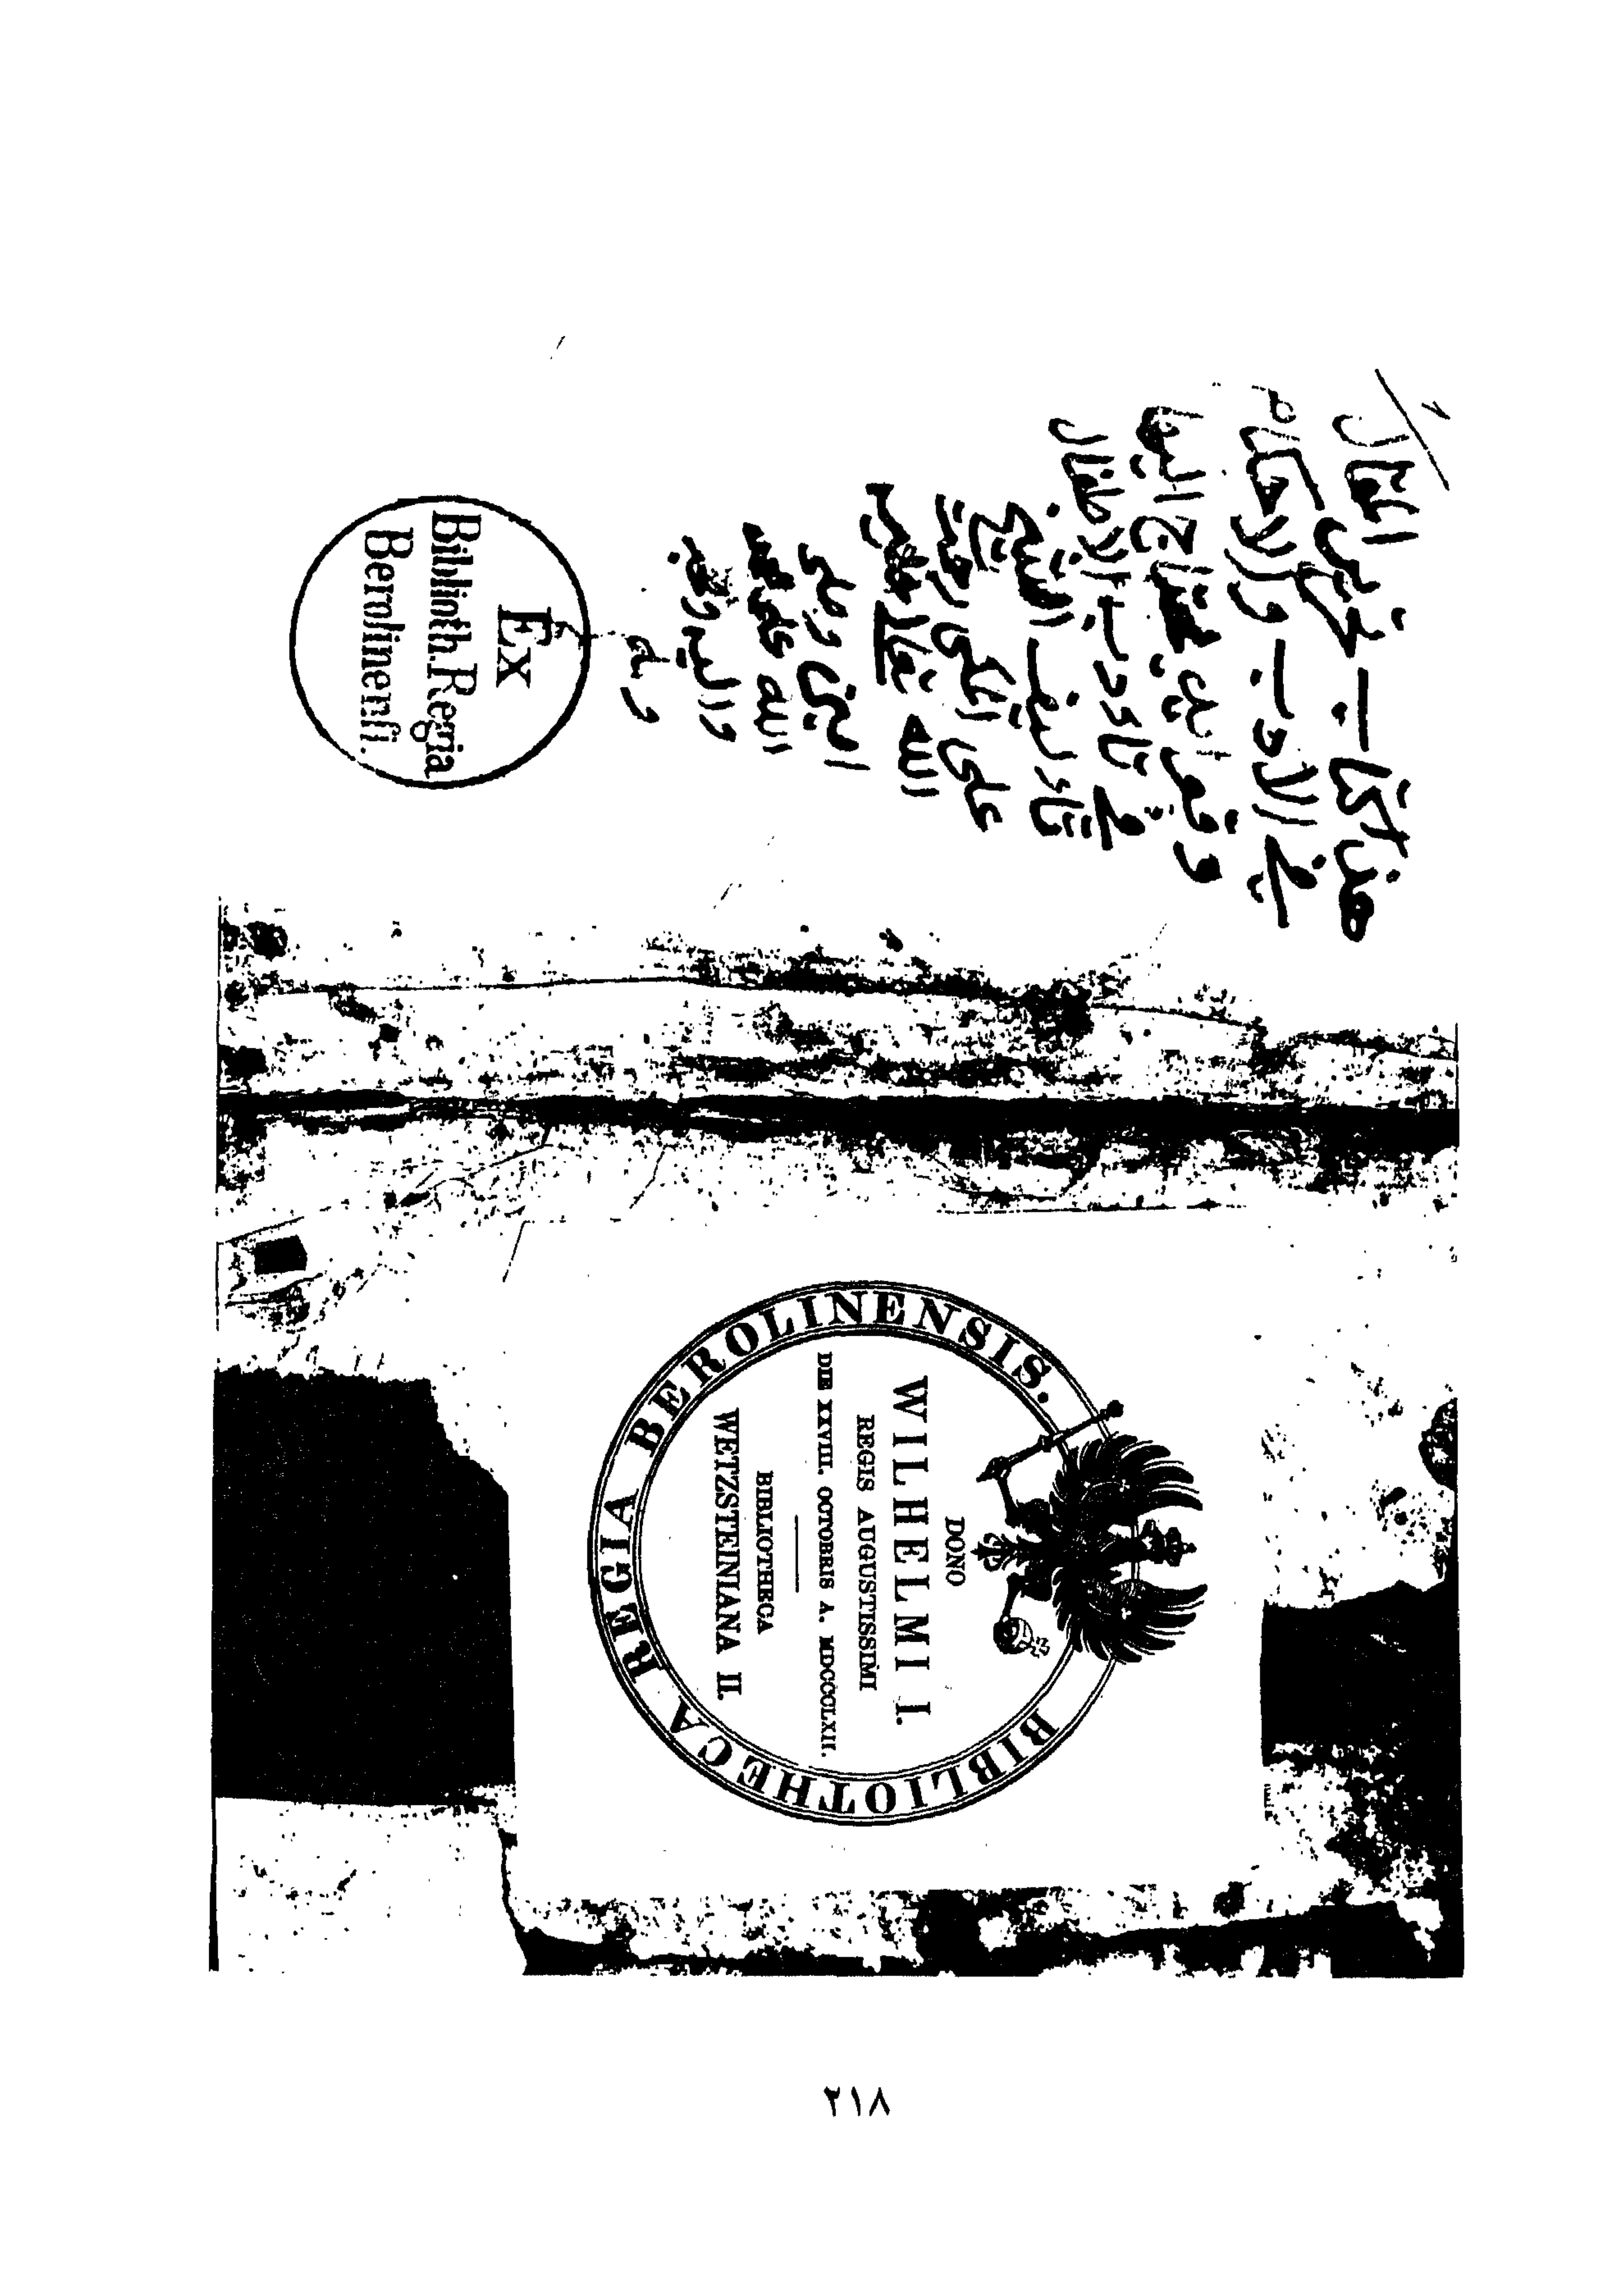 هذا كتاب تحرير المقال
في الاداب والاحكام
وفوايد يحتاج اليها
في تاديب الاطفال
تاليف الشيخ
على المكي رحمه
الله
امين وصلى
الله على
واله وصحبه
وسلم
Ex
Biblioth. Regia
Berolinensi.
BIBLIOTHECA REGIA BEROLINENSIS.
DONO
WILHELMI I.
REGIS AUGUSTISSIMI
DIE XXVIII. OCTOBRIS A. MDCCCLXII.
BIBLIOTHECA
WETZSTEINIANA II.
٢١٨